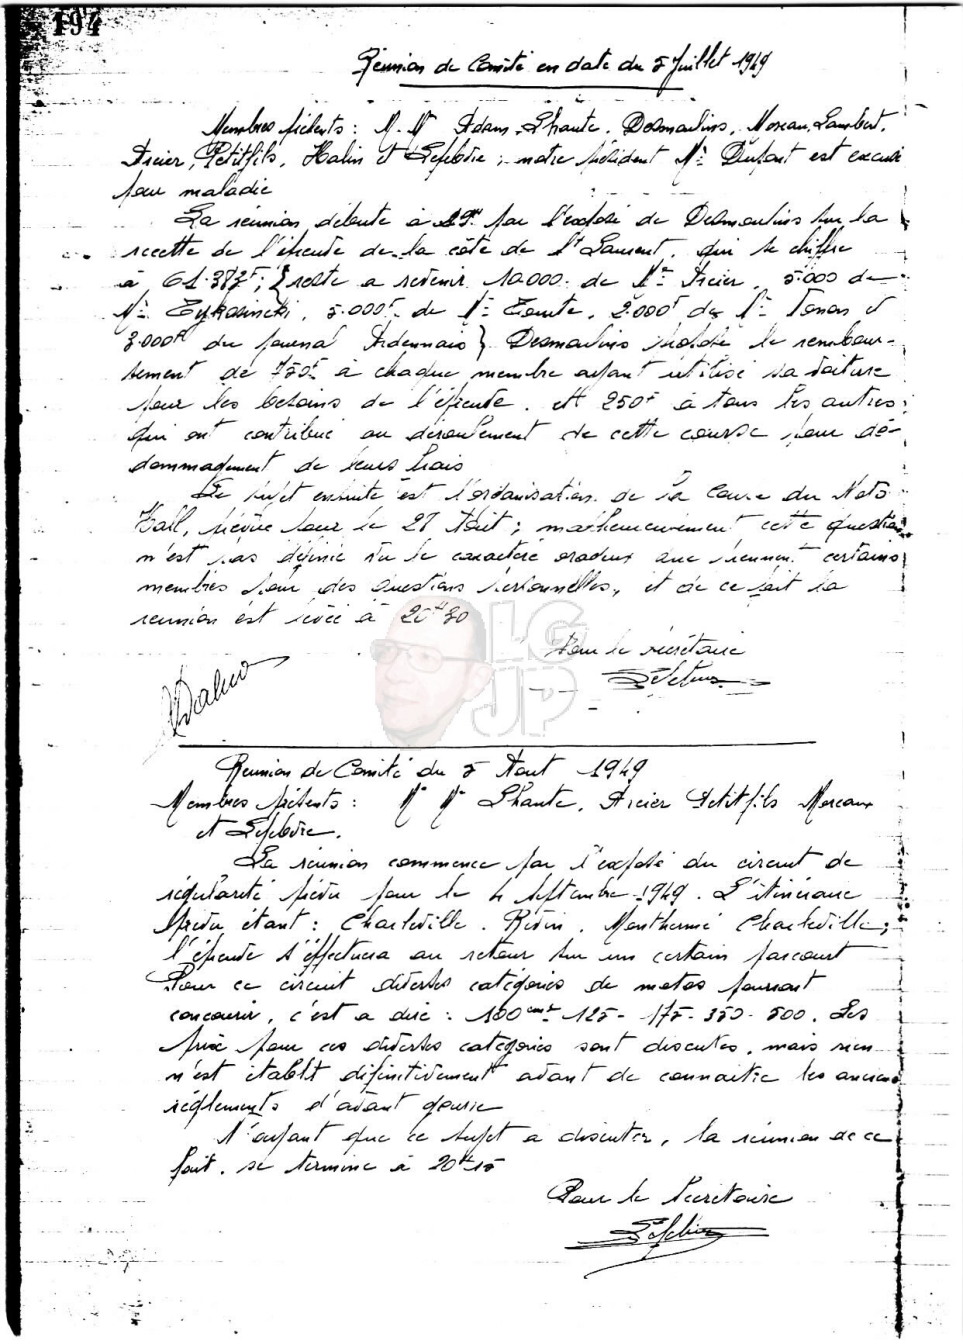 194
Réunion de Comité en date du 5 Juillet 1949
Membres présents : M. Mrs Adam, Lhaute, Desmoulins, Moreau, Lambert,
Petitfils, Halin et Lefebvre, notre président Mr Dupont est excusé
pour maladie
La réunion débute à 19H par l'exposé de Desmoulins sur la
recette de l'épreuve de la côte de St Laurent, qui se chiffre
à 61.387F; } reste a revenir 10.000 de Mr 5.000 de
Mr 5.000F de Mr 2.000F de Mr et
3.000F du journal Ardennais } Desmoulins propose le rembour-
sement de 750F à chaque membre ayant utilisé sa voiture
pour les besoins de l'épreuve, et 250F à tous les autres
qui ont contribué au déroulement de cette course pour dé-
dommagement de leurs frais
Le sujet ensuite est l'organisation de la Course du Moto
Ball, prévue pour le 28 Aout; malheureusement cette question
n'est pas définie vu le caractère que prennent certains
membres pour des questions personnelles, et de ce fait la
reunion est levée à 20H30
Pour le secrétaire
Lefebvre
LG
JP
Reunion de Comité du 5 Aout 1949
Membres présents : Mr Mr Lhaute, Petitfils Moreaux
et Lefebvre.
La réunion commence par l'exposé du circuit de
régularité prévu pour le 4 septembre 1949. L'itinéraire
prévu étant : Charleville. Revin. Monthermé Charleville;
l'épreuve s'effectuera au retour sur un certain parcourt
Pour ce circuit diverses catégories de motos pourront
concourir, c'est a dire : 100cm3 125- 175- 350- 500. Les
prix pour ces diverses catégories sont discutés, mais rien
n'est établt définitivement avant de connaitre les anciens
règlements d'avant guerre
N'ayant que ce sujet a discuter, la réunion de ce
fait, se termine à 20H15
Pour le Secrétaire
Lefebvre